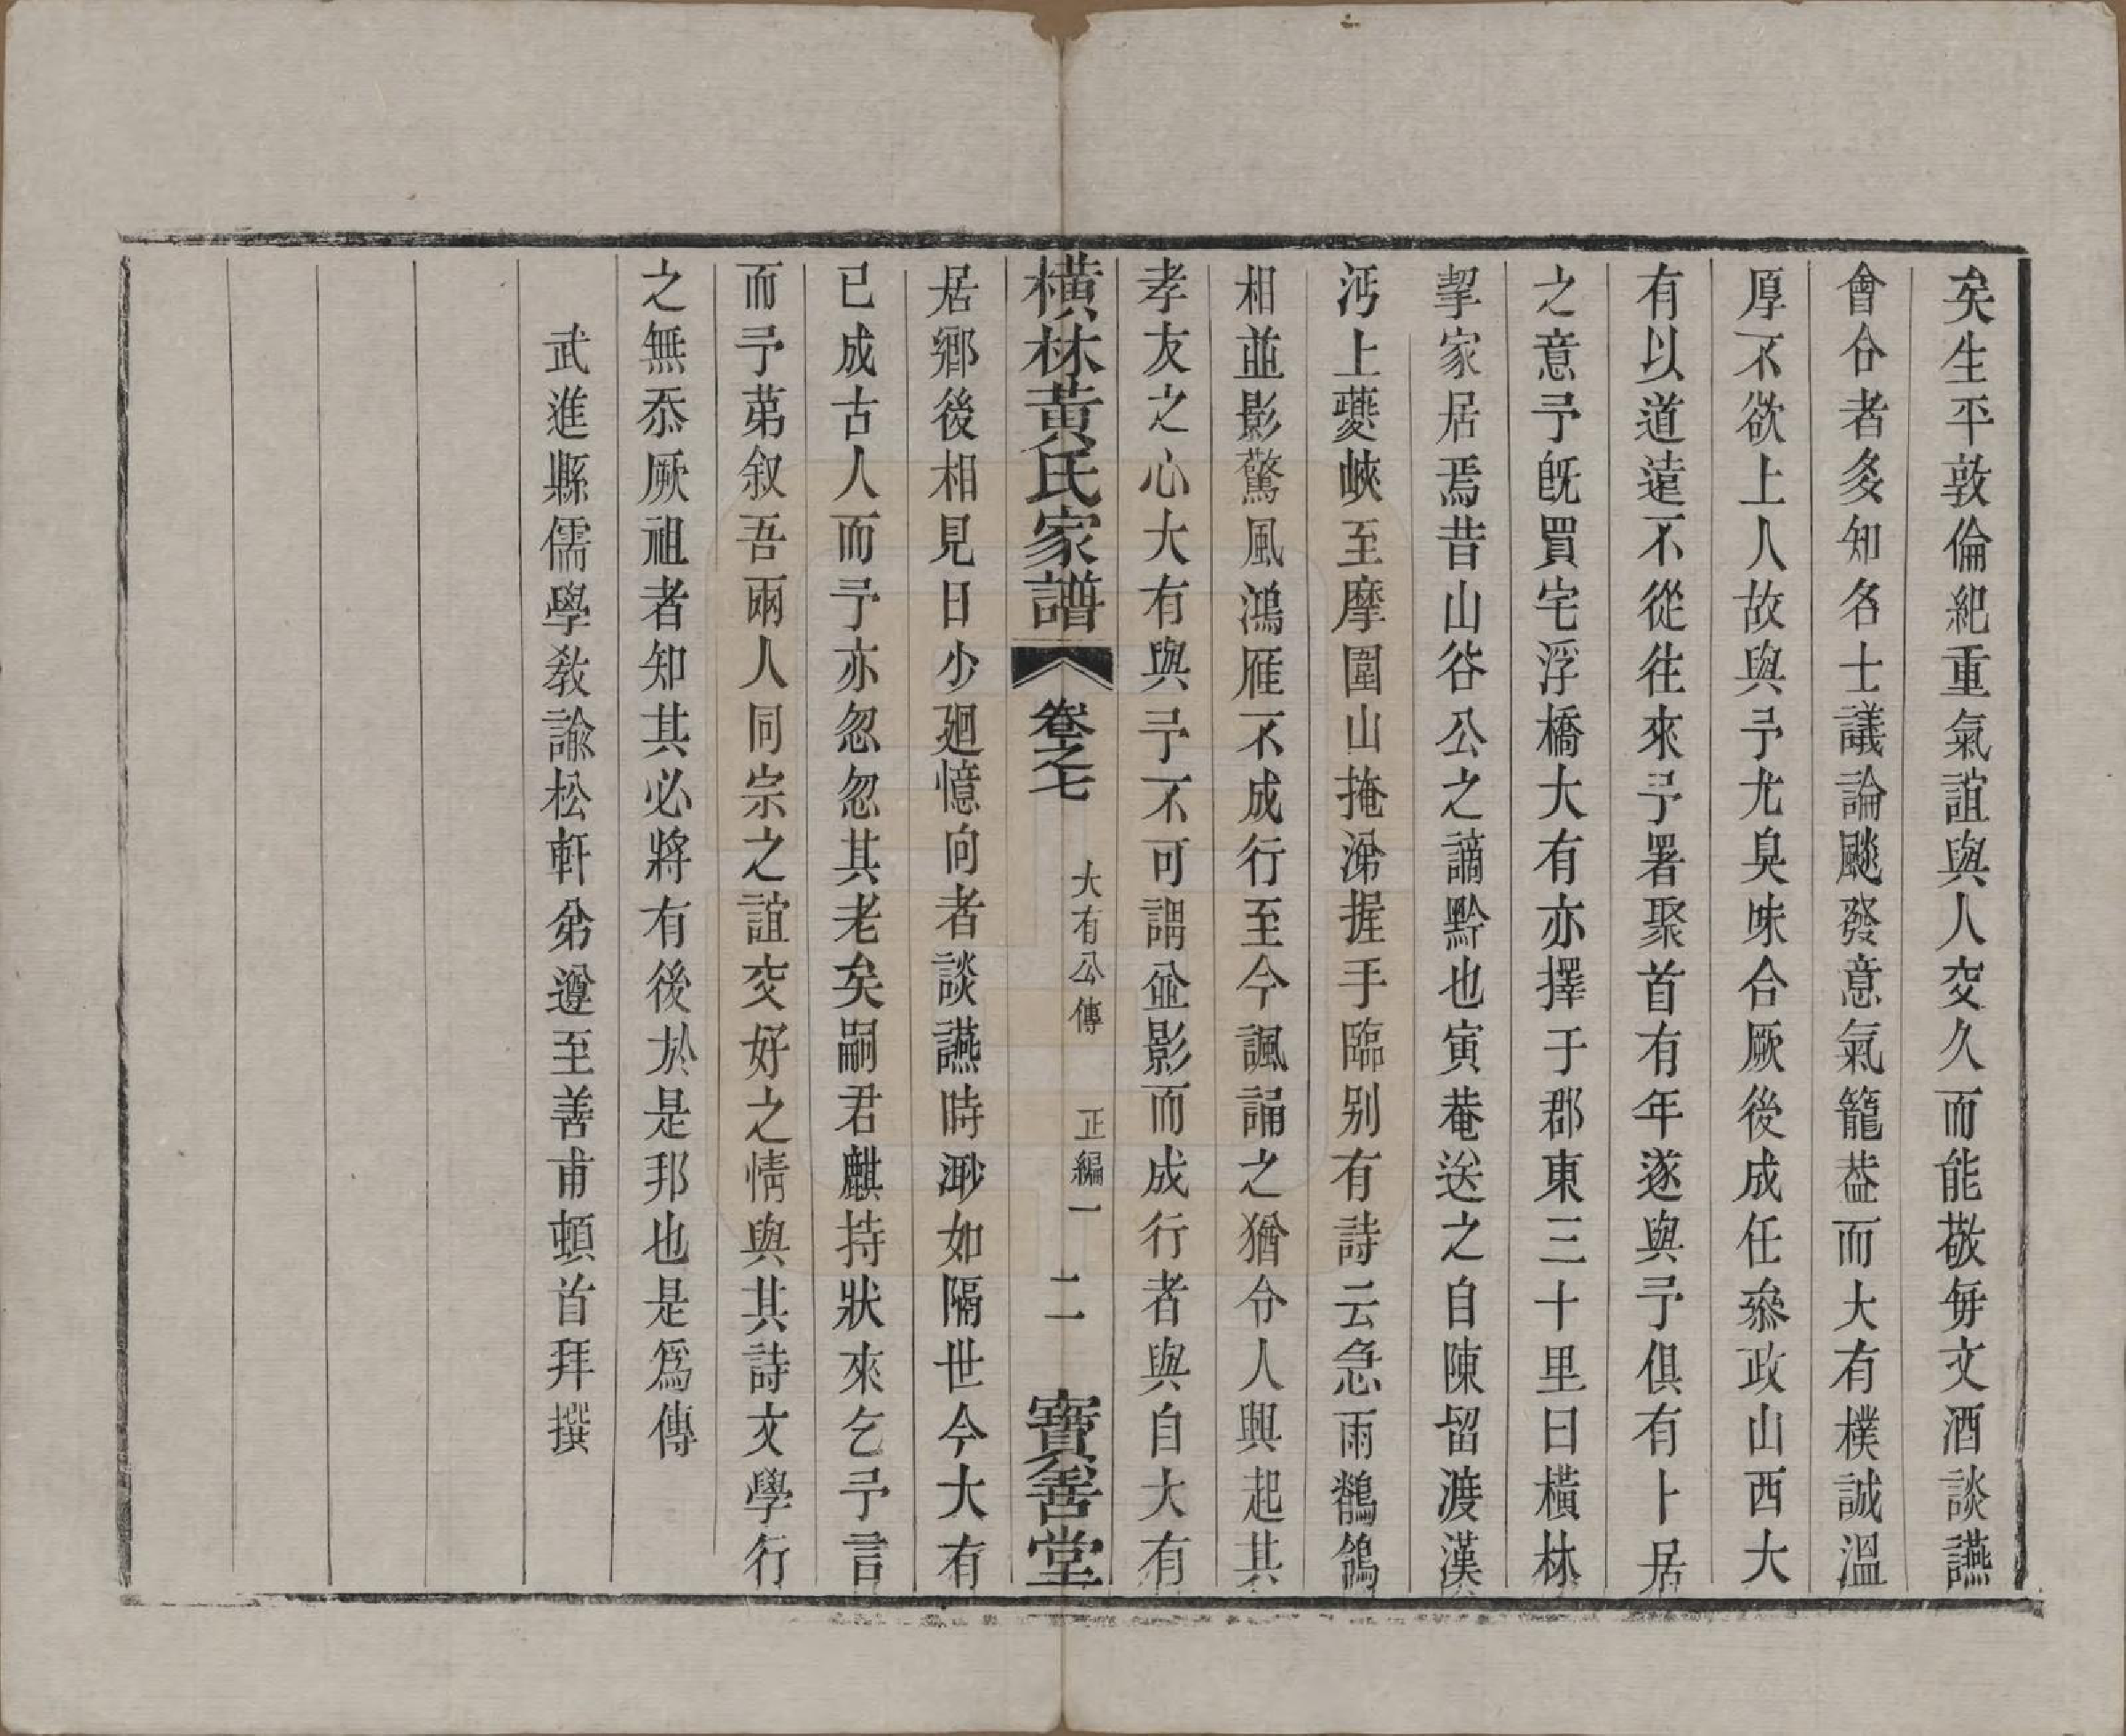 矣生平敦倫紀重氣誼與人交久而能敬每文酒談讌
會合者多知名士議論飈發意氣籠葢而大有樸誠溫
厚不欲上人故與予尤臭味合厥後成任叅政山西大
有以道遠不從往來予署聚首有年遂與予俱有卜居
之意予旣買宅浮橋大有亦擇于郡東三十里曰橫林
挈家居焉昔山谷公之謫黔也寅菴送之自陳留渡漢
沔上夔峽至摩圍山掩涕握手臨別有詩云急雨鶺鴒
相並影驚風鴻雁不成行至今諷誦之猶令人興起其
孝友之心大有與予不可謂並影而成行者與自大有
橫林黃氏家譜 卷之七 大有公傳 正編一 二 寶善堂
居鄉後相見日少廻憶向者談讌時渺如隔世今大有
已成古人而予亦忽忽其老矣嗣君麒持狀來乞予言
而予苐叙吾兩人同宗之誼交好之情與其詩文學行
之無忝厥祖者知其必將有後於是邦也是爲傳
武進縣儒學教諭松軒弟遵至善甫頓首拜撰